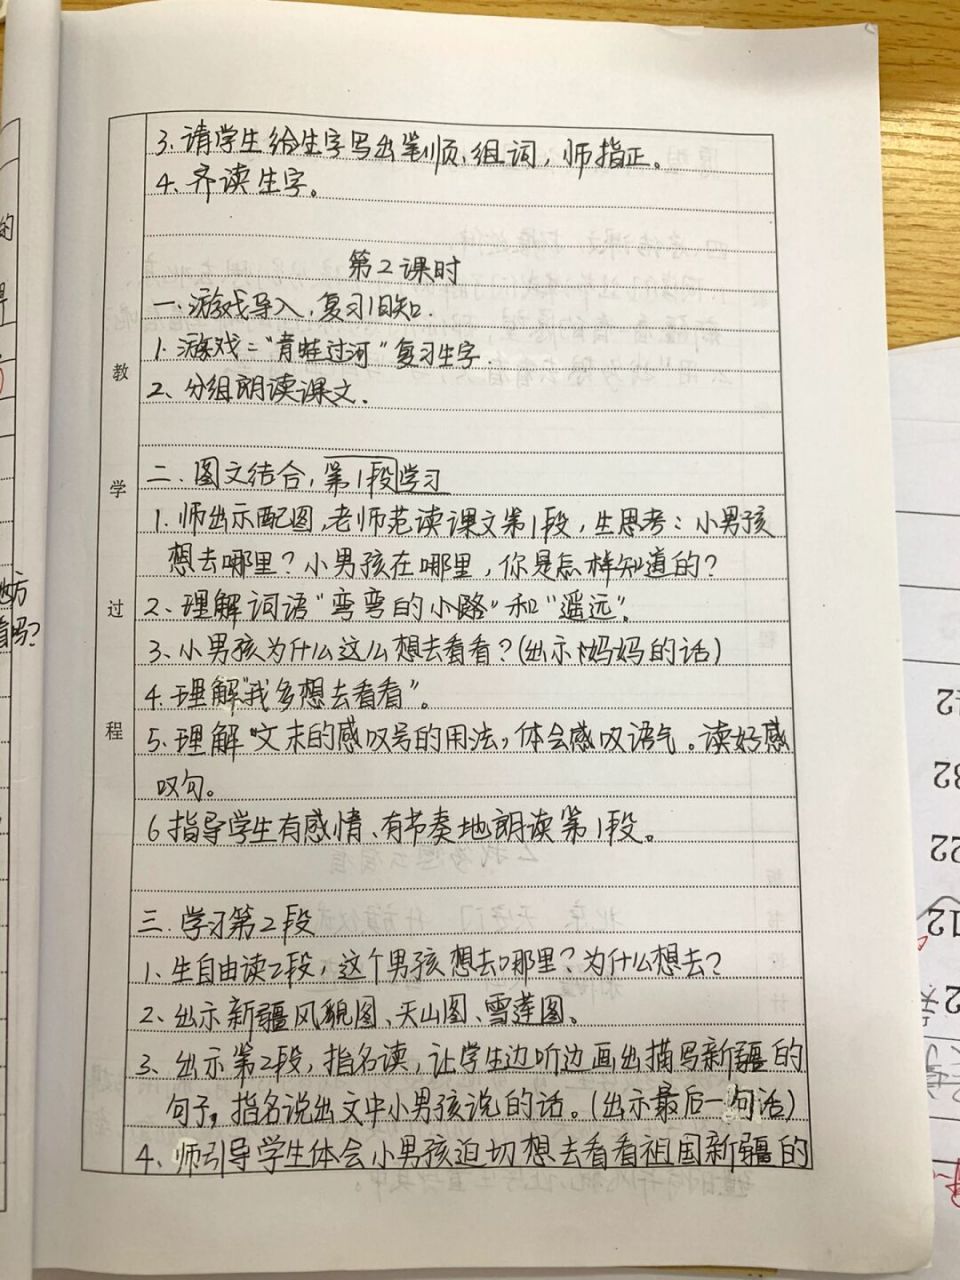 3. 请学生给生字写出笔顺、组词，师指正。
4. 齐读生字。
第2课时
一.游戏导入，复习旧知.
1. 游戏："青蛙过河"复习生字
2. 分组朗读课文.
二.图文结合，第1段学习
1. 师出示配图,老师范读课文第1段，生思考：小男孩
想去哪里？小男孩在哪里，你是怎样知道的？
2、理解词语"弯弯的小路"和"遥远".
3、小男孩为什么这么想去看看？(出示妈妈的话)
4. 理解"我多想去看看"。
5. 理解文末的感叹号的用法，体会感叹语气。读好感
叹句。
6 指导学生有感情、有节奏地朗读第1段。
三.学习第2段
1、生自由读2段，这个男孩想去哪里？为什么想去？
2、出示新疆风貌图、天山图、雪莲图。
3、出示第2段，指名读，让学生边听边画出描写新疆的
句子，指名说出文中小男孩说的话。(出示最后一句话)
4、师引导学生体会小男孩迫切想去看看祖国新疆的
教
学
过
程
的
地方
吗？
22
12